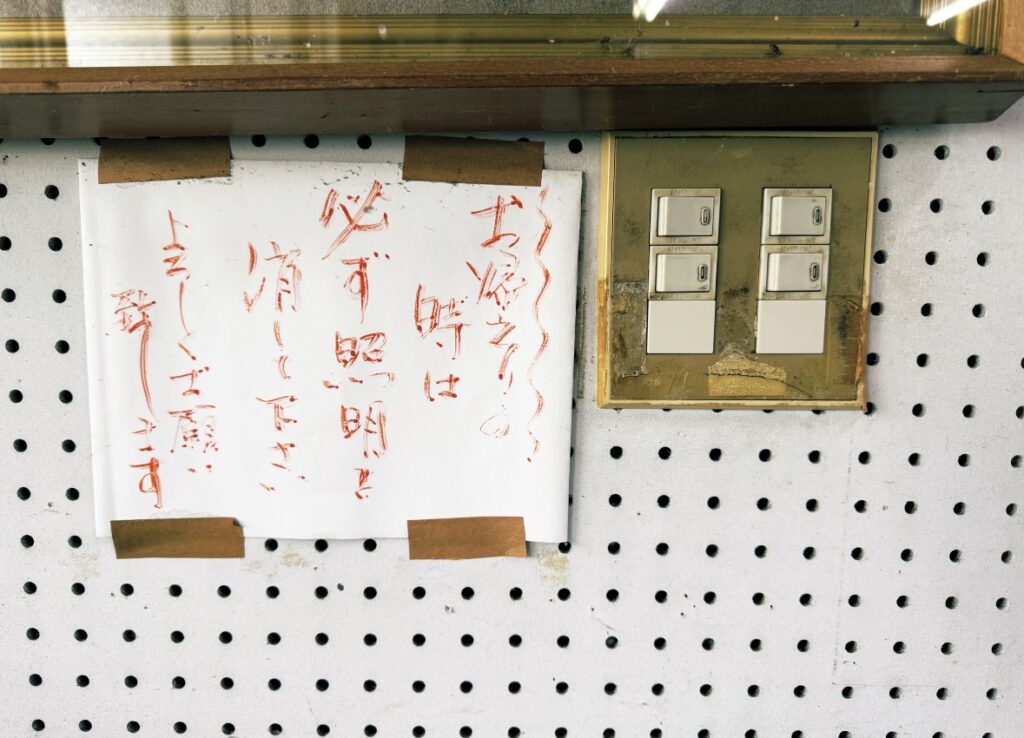 お帰えりの
時は
必ず照明を
消して下さい
よろしくお願い
致します
National
National